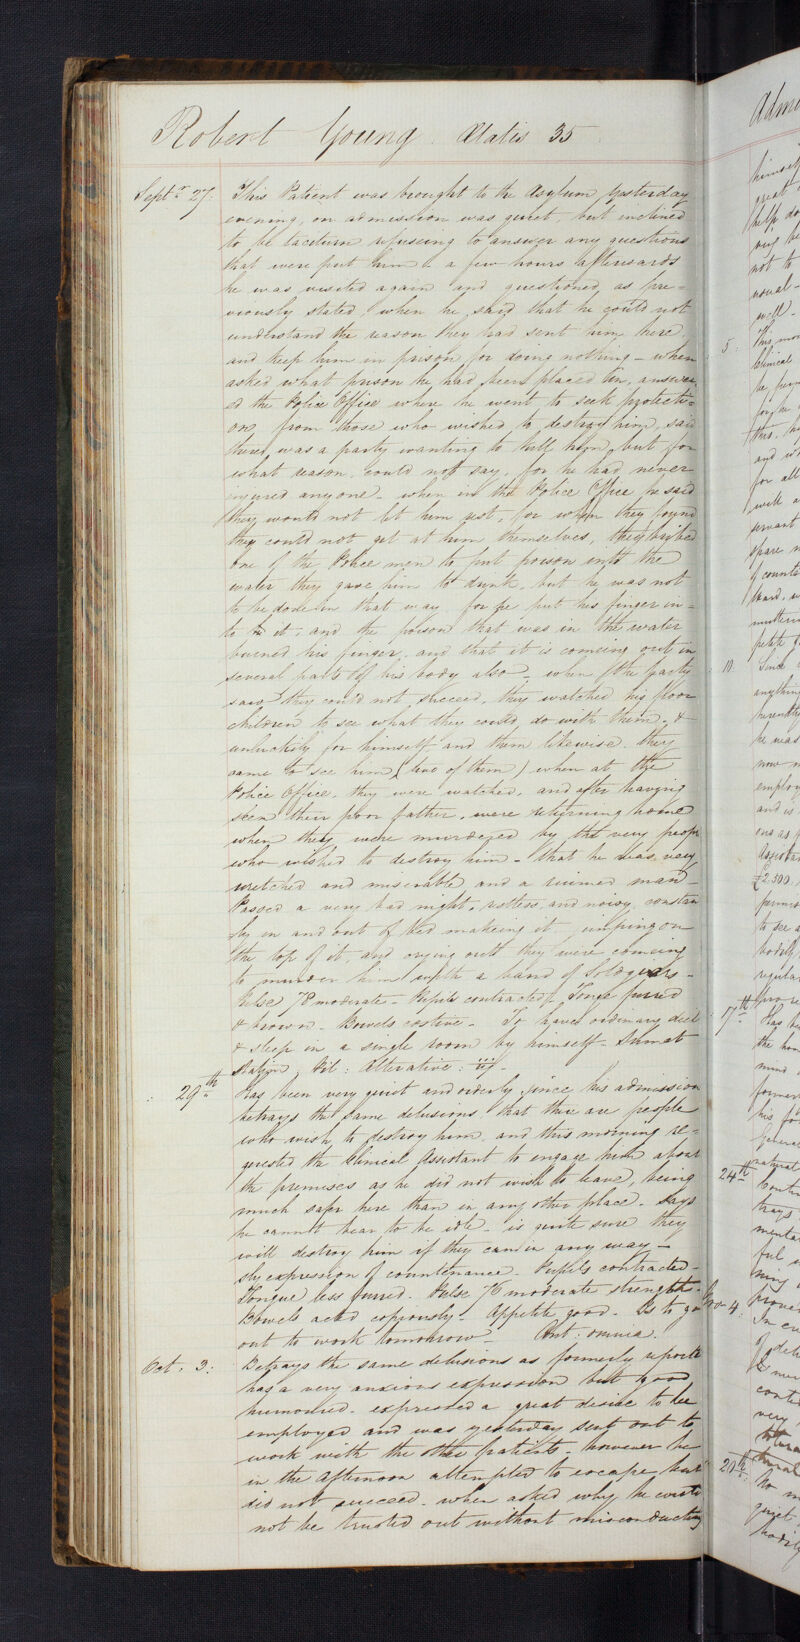 Robert Young Ætatis 35
Septr 27. This Patient was brought to the Asylum yesterday
evening, on admission was quiet, but inclined
to be taciturn refusing to answer any questions
that were put him & a few hours afterwards
he was visited again and questioned as pre=
viously stated, when he said that he could not
understand the reason they had sent him here
and keep him in prison for doing nothing – when
asked what prison he had been placed in, answer
ed the Police Office where he went to seek protecti=
on from those who wished to destroy him, said
there was a party wanting to kill him, but for
what reason could not say, for he had never
injured anyone – when in the Police Office he said
they would not let him rest, for when they found
they could not get at him themselves, they bribed
one of the Police men to put poison into the
water they gave him to drink, but he was not
to be done in that way for he put his finger in=
to it, and the poison that was in the water
burned his finger, and that it is comeing out in
several parts of his body also – when the party
saw they could not succeed, they watched his poor
children to see what they could do with them, &
unluckily for himself and them likewise they
came to see him (two of them) when at the
Police Office, they were watched, and after having
seen their poor father, were returning home
when they were murdered by the very people
who wished to destroy him – that he was very
wretched and miserable and a ruined man –
Passed a very bad night, restless and noisy, constan
tly in and out of bed makeing it, umpingon
the top of it, and crying out they were comeing
to murder him with a band of Soldgiers –
Pulse 78 moderate – Pupils contracted, Tonge furred
& brown – Bowels costive – To have ordinary diet
& sleep in a single room by himself – Sumat
statim Pil: Alterative: iij –
29th Has been very quiet and orderly since his admission
betrays the same delusions that there are people
who wish to destroy him, and this morning re=
quested the Clinical Assistant to engage him about
the premises as he did not wish to leave, being
much safer here than in any other place – Says
he cannot bear to be idle – is quite sure they
will destroy him if they can in any way –
sly expression of countenance – Pupils contracted –
Tongue less furred – Pulse 76 moderate strength –
Bowels acted copiously – Appetite good – Is to go
out to work tomorrow – Cont: omnia.
Oct. 3: Betrays the same delusions as formerly reported
has a very anxious expression but good
humoured – expressed a great desire to be
employed and was yesterday sent out to
work with the other patients – however he
in the afternoon attempted to escape but
did not succeed – when asked why he could
not be trusted out without misconducting
Admi
himself
great
help do
not to
usual –
well –
5 This mor
Clinical
for he
this, he
and
for all
will a
servant
spare
of counte
10 Since
anything
he was
now
employ
and is
Assistan
£2.500
to see
bodily
regular
17th Has be
the
mind
forme
his fo
general
natural
24th Conti
trays
menta
ful
ning
prove
Nov 4. In
of
contin
very
20th No
quiet
bodily